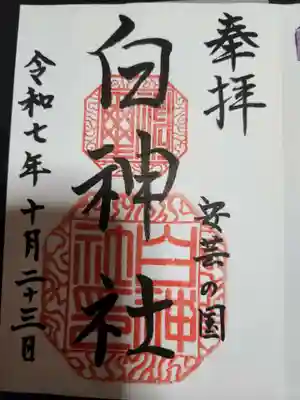 奉拝
安芸の国
白神社
令和七年十月二十三日
白神社